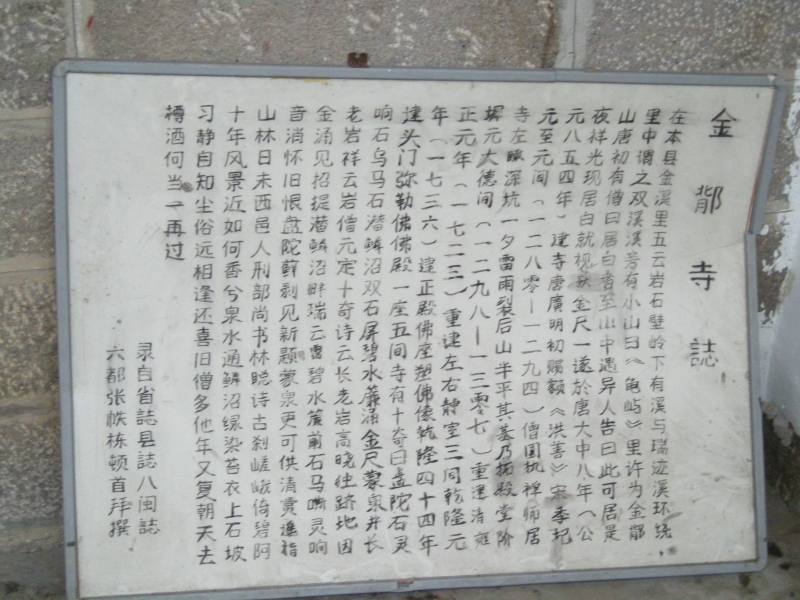 金郮寺誌
在本县金溪里五云岩石壁岭下有溪与瑞迹溪环绕
里中谓之双溪溪旁有小山曰《龟屿》里许为金郮
山唐初有僧曰居白者至山中遇异人告曰此可居是
夜祥光现居白就视获金尺一遂於唐大中八年（公
元八五四年）建寺唐廣明初赐额《洪善》宋季圮
元至元间（一二八零—一二九四）僧国机禅师居
寺左瞰深坑一夕雷雨裂后山半平其基乃拓殿堂阶
墀元大德间（一二九八—一三零七）重建清雍
正元年（一七二三）重建左右静室三间乾隆元
年（一七三六）建正殿佛座塑佛像乾隆四十四年
建头门弥勒佛佛殿一座五间寺有十奇曰盘陀石灵
响石乌马石潜鳞沼双石屏碧水簾涌金尺蒙泉井长
老岩祥云岩僧元定十奇诗云长老岩高晓往跻地因
金涌见招提潜鳞沼畔瑞云雷碧水簾前石马嘶灵响
音消怀旧恨盘陀藓剥见新题蒙泉更可供清赏進指
山林日未西邑人刑部尚书林聪诗古刹嵯峨倚碧阿
十年风景近如何香兮泉水通鳞沼绿染苔衣上石坡
习静自知尘俗远相逢还喜旧僧多他年又复朝天去
樽酒何当一再过
录自省誌县誌八闽誌
六都张帙栋顿首拜撰